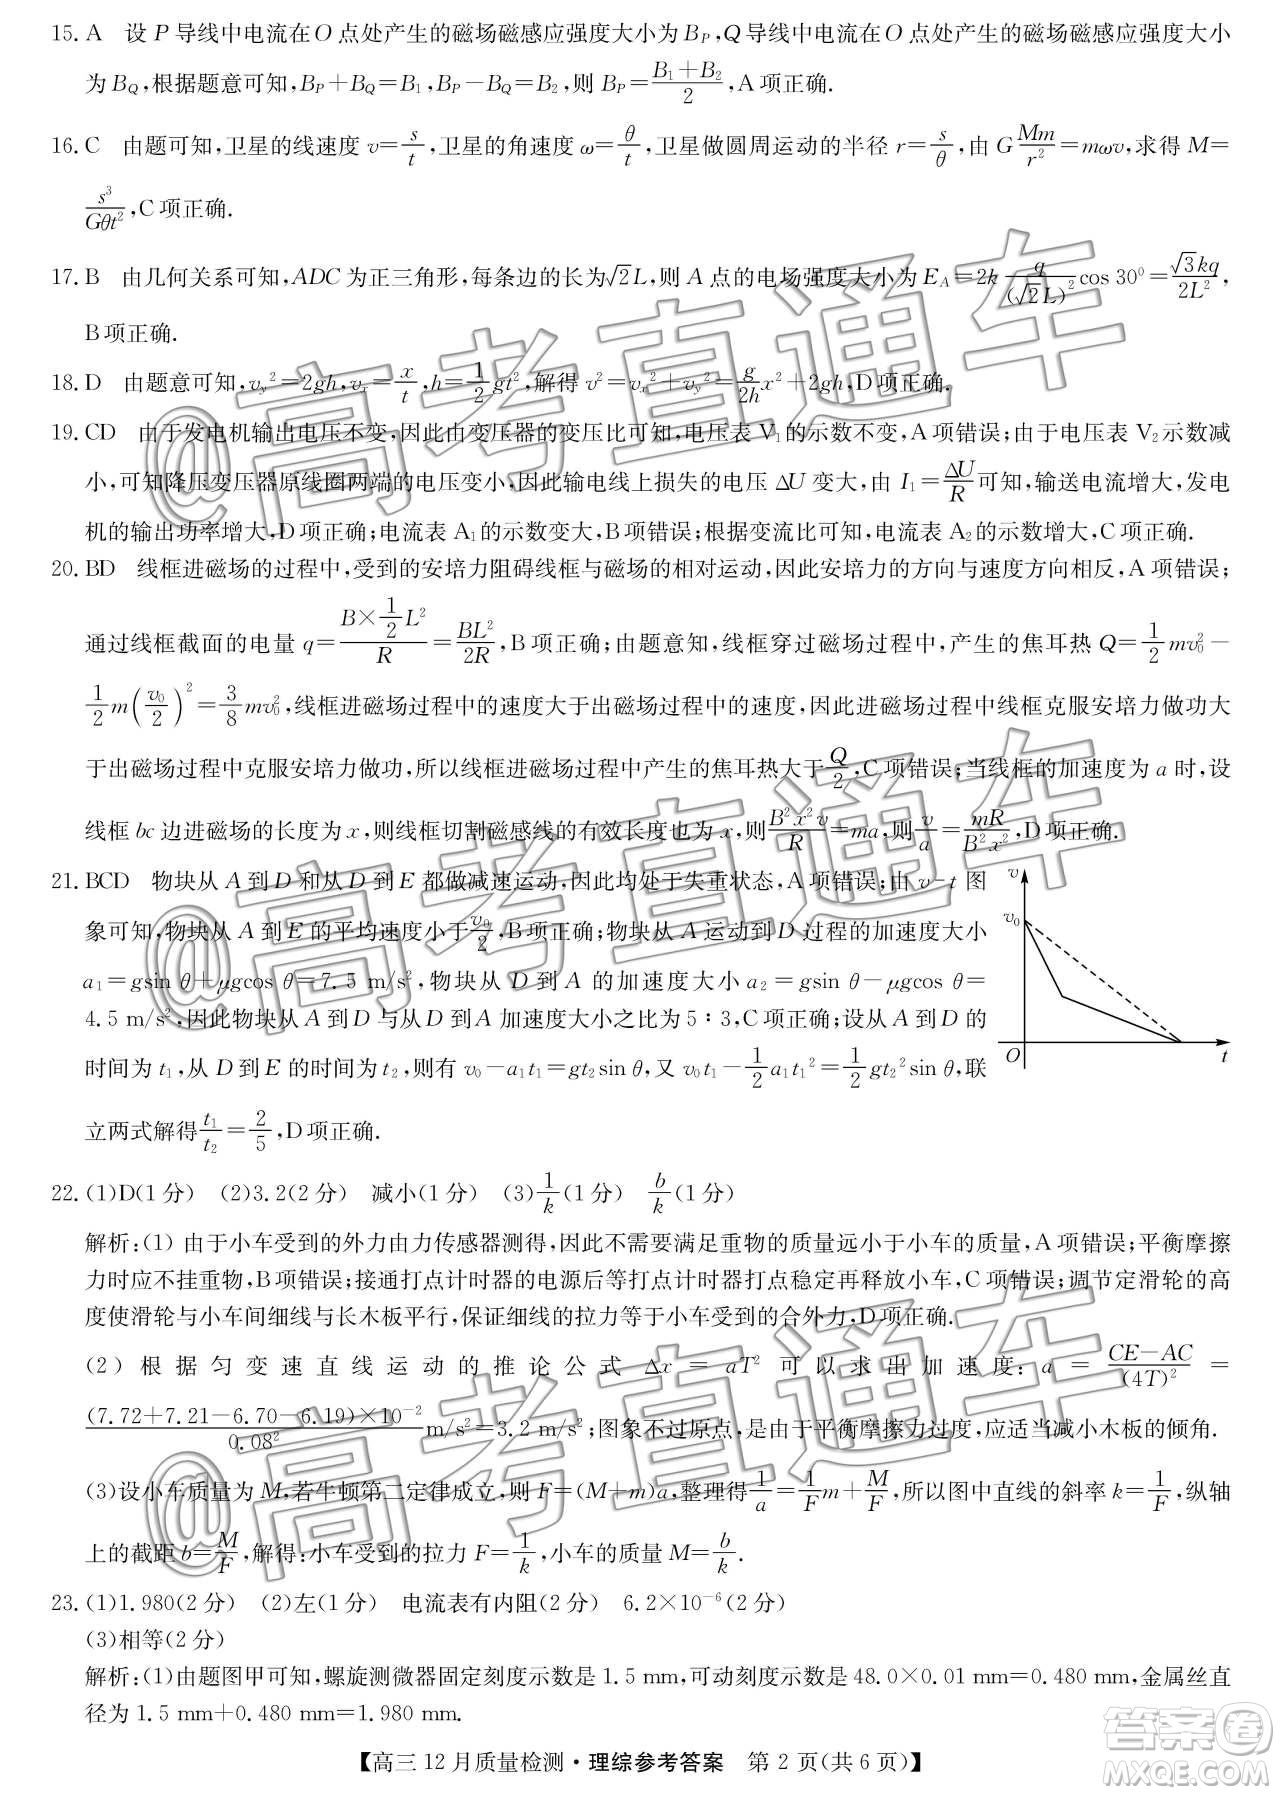 15. A 设 P 导线中电流在 O 点处产生的磁场磁感应强度大小为 B_P,Q 导线中电流在 O 点处产生的磁场磁感应强度大小
为 B_Q,根据题意可知,B_P+B_Q=B_1,B_P-B_Q=B_2,则 B_P=(B_1+B_2)/2,A 项正确.
16. C 由题可知,卫星的线速度 v=s/t,卫星的角速度 ω=θ/t,卫星做圆周运动的半径 r=s/θ,由 G Mm/r^2=mωv,求得 M=
s^3/(Gθt^2),C 项正确.
17. B 由几何关系可知,ADC 为正三角形,每条边的长为√2L,则 A 点的电场强度大小为 E_A=2k q/(√2L)^2 cos 30^0=√3kq/2L^2,
B 项正确.
18. D 由题意可知,v_y^2=2gh,v_x=x/t,h=1/2 gt^2,解得 v^2=v_x^2+v_y^2=g/2h x^2+2gh,D 项正确.
19. CD 由于发电机输出电压不变,因此由变压器的变压比可知,电压表 V_1的示数不变,A 项错误;由于电压表 V_2示数减
小,可知降压变压器原线圈两端的电压变小,因此输电线上损失的电压 ΔU 变大,由 I_1=ΔU/R可知,输送电流增大,发电
机的输出功率增大,D 项正确;电流表 A_1的示数变大,B 项错误;根据变流比可知,电流表 A_2的示数增大,C 项正确.
20. BD 线框进磁场的过程中,受到的安培力阻碍线框与磁场的相对运动,因此安培力的方向与速度方向相反,A 项错误;
通过线框截面的电量 q=(B×1/2 L^2)/R=BL^2/2R,B 项正确;由题意知,线框穿过磁场过程中,产生的焦耳热 Q=1/2 mv_0^2-
1/2 m(v_0/2)^2=3/8 mv_0^2,线框进磁场过程中的速度大于出磁场过程中的速度,因此进磁场过程中线框克服安培力做功大
于出磁场过程中克服安培力做功,所以线框进磁场过程中产生的焦耳热大于Q/2,C 项错误;当线框的加速度为 a 时,设
线框 bc 边进磁场的长度为 x,则线框切割磁感线的有效长度也为 x,则B^2x^2v/R=ma,则v/a=mR/B^2x^2,D 项正确.
21. BCD 物块从 A 到 D 和从 D 到 E 都做减速运动,因此均处于失重状态,A 项错误;由 v-t 图
象可知,物块从 A 到 E 的平均速度小于v_0/2,B 项正确;物块从 A 运动到 D 过程的加速度大小
a_1=gsin θ+μgcos θ=7.5 m/s^2,物块从 D 到 A 的加速度大小 a_2=gsin θ-μgcos θ=
4.5 m/s^2,因此物块从 A 到 D 与从 D 到 A 加速度大小之比为 5∶3,C 项正确;设从 A 到 D 的
时间为 t_1,从 D 到 E 的时间为 t_2,则有 v_0-a_1t_1=gt_2sin θ,又 v_0t_1-1/2 a_1t_1^2=1/2 gt_2^2sin θ,联
立两式解得t_1/t_2=2/5,D 项正确.
v
v_0
O
t
22. (1)D(1 分) (2)3.2(2 分) 减小(1 分) (3)1/k(1 分) b/k(1 分)
解析:(1) 由于小车受到的外力由力传感器测得,因此不需要满足重物的质量远小于小车的质量,A 项错误;平衡摩擦
力时应不挂重物,B 项错误;接通打点计时器的电源后等打点计时器打点稳定再释放小车,C 项错误;调节定滑轮的高
度使滑轮与小车间细线与长木板平行,保证细线的拉力等于小车受到的合外力,D项正确.
(2) 根据匀变速直线运动的推论公式 Δx = aT^2 可以求出加速度: a = (CE-AC)/(4T)^2 =
(7.72+7.21-6.70-6.19)×10^-2/0.08^2 m/s^2=3.2 m/s^2;图象不过原点,是由于平衡摩擦力过度,应适当减小木板的倾角.
(3)设小车质量为 M,若牛顿第二定律成立,则 F=(M+m)a,整理得1/a=1/F m+M/F,所以图中直线的斜率 k=1/F,纵轴
上的截距 b=M/F,解得:小车受到的拉力 F=1/k,小车的质量 M=b/k.
23. (1)1.980(2 分) (2)左(1 分) 电流表有内阻(2 分) 6.2×10^-6(2 分)
(3)相等(2 分)
解析:(1)由题图甲可知,螺旋测微器固定刻度示数是 1.5 mm,可动刻度示数是 48.0×0.01 mm=0.480 mm,金属丝直
径为 1.5 mm+0.480 mm=1.980 mm.
【高三 12 月质量检测·理综参考答案 第 2 页(共 6 页)】
@高考直通车
@高考直通车
@高考直通车
答案圈
MXQE.COM